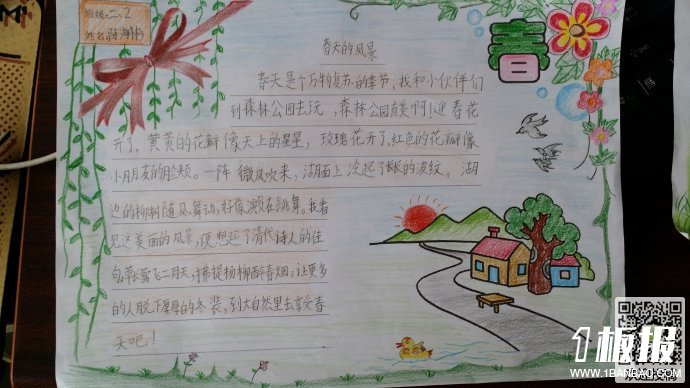 班级:二、2
姓名:
春天的风景
春
春天是个万物复苏的季节,我和小伙伴们
到森林公园去玩,森林公园真美啊!迎春花
开了,黄黄的花瓣像天上的星星,玫瑰花开了,红色的花瓣像
小朋友的脸颊。一阵微风吹来,湖面上泛起了长长的波纹。湖
边的柳树随风舞动,好像在跳舞。我看
见这美丽的风景,便想起了清代诗人的佳
句:草长莺飞二月天,拂提杨柳醉春烟。让更多
的人脱下厚厚的冬装,到大自然里去享受春
天吧!
1板报
WWW.1BANBAO.COM